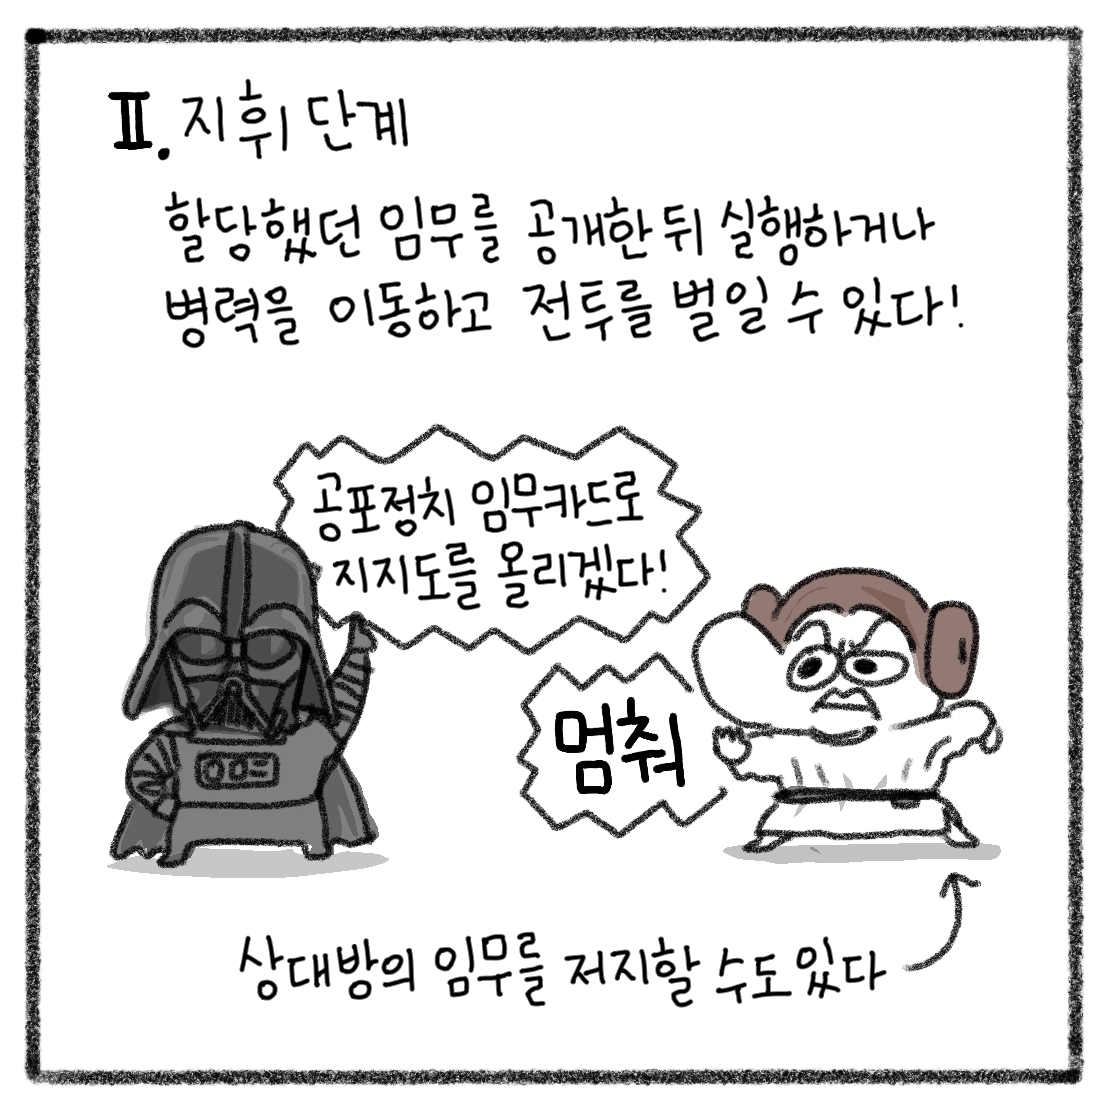 Ⅱ. 지휘 단계
할당했던 임무를 공개한 뒤 실행하거나
병력을 이동하고 전투를 벌일 수 있다!
공포정치 임무카드로
지지도를 올리겠다!
멈춰
상대방의 임무를 저지할 수도 있다